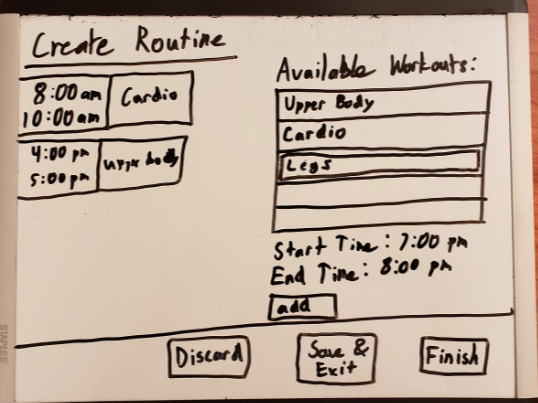 Create Routine
8:00 am
10:00 am
Cardio
4:00 pm
5:00 pm
upper body
Available Workouts:
Upper Body
Cardio
Legs
Start Time: 7:00 pm
End Time: 8:00 pm
add
Discard
Save &
Exit
Finish
STAPLES